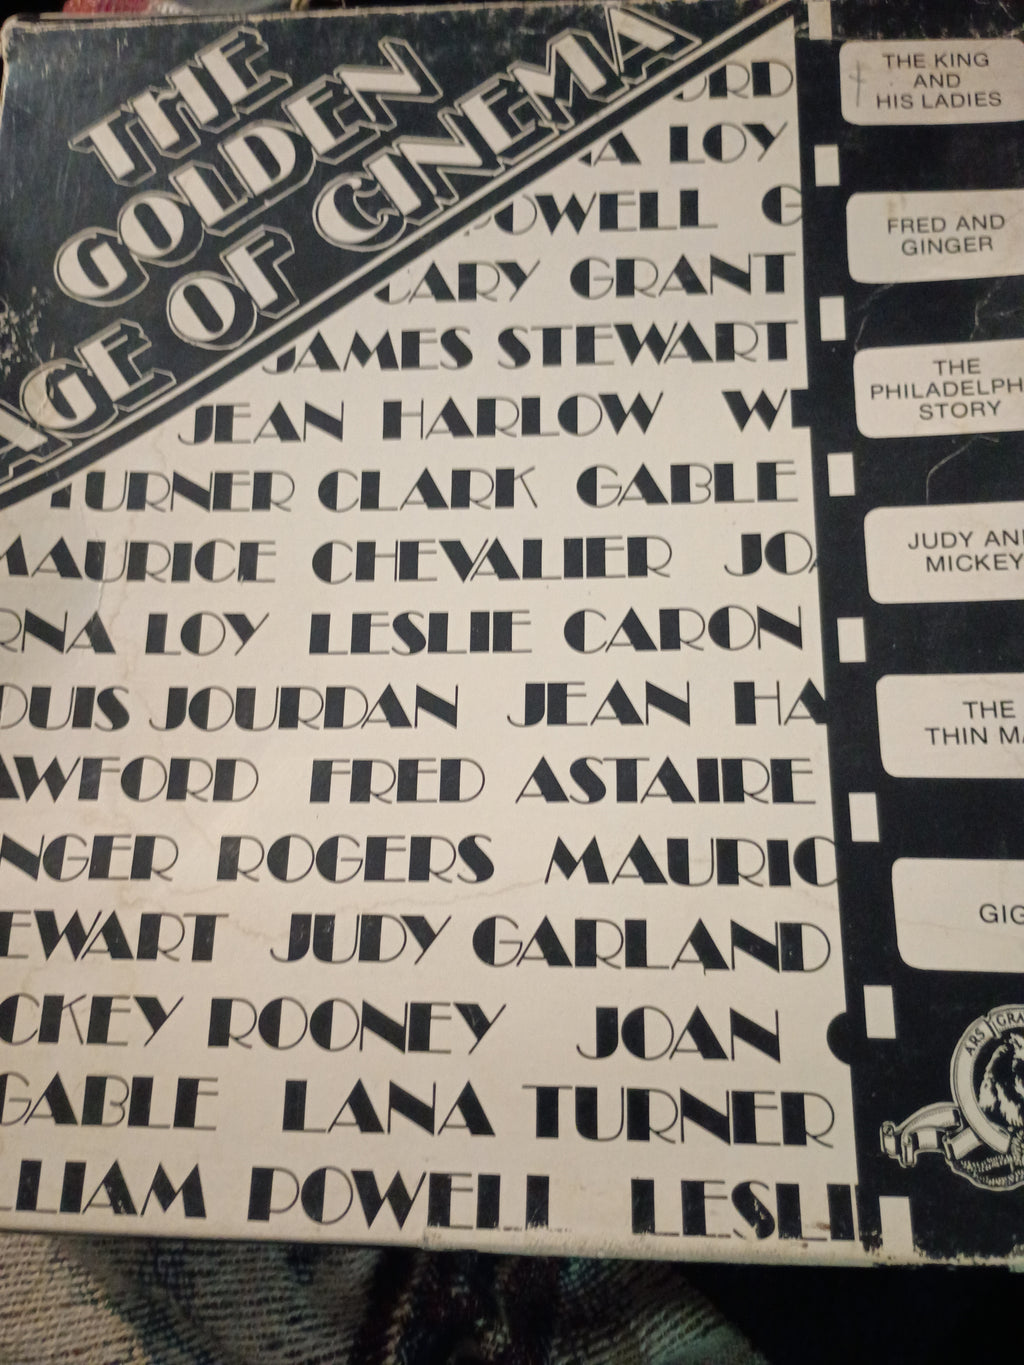 THE
GOLDEN
AGE OF CINEMA
RD
A LOY
POWELL G
CARY GRANT
JAMES STEWART
JEAN HARLOW W
TURNER CLARK GABLE
MAURICE CHEVALIER JOA
RNA LOY LESLIE CARON
OUIS JOURDAN JEAN HA
AWFORD FRED ASTAIRE
NGER ROGERS MAURIC
EWART JUDY GARLAND
CKEY ROONEY JOAN
GABLE LANA TURNER
LLIAM POWELL LESLI
THE KING
AND
HIS LADIES
FRED AND
GINGER
THE
PHILADELPH
STORY
JUDY AN
MICKEY
THE
THIN MA
GIG
ARS GRA